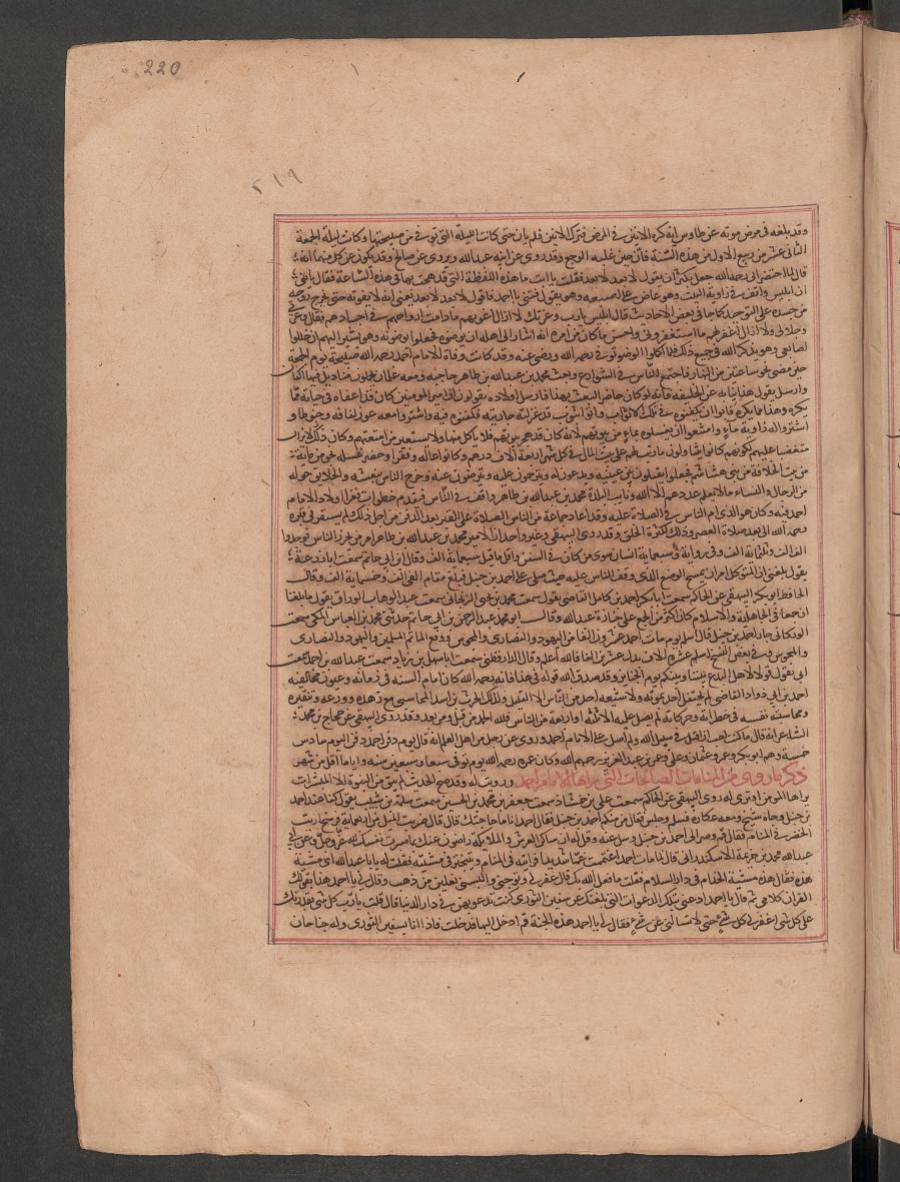 220
٢١٩
وقد بلغه في مرض موته عن طاوس انه كره الانين في المرض فترك الانين فلم يان حتى كانت الليلة التي توفي من صبيحتها وكانت ليلة الجمعة
الثاني عشر من ربيع الاول من هذه السنة فأن حين غلبه الوجع وقد روى عن ابنه عبد الله ويروى عن صالح وقد يكون عن كل منهما انه
قال لما احتضر ابى رحمه الله جعل يكثر ان يقول لا بعد لا بعد فقلت يا ابت ما هذه اللفظة التي قد لهجت بها في هذه الساعة فقال يا بني
ان ابليس واقف في زاوية البيت وهو عاض على اصبعه وهو يقول فتني يا احمد فاقول لا بعد لا بعد يعني انه لا يفوته حتى تخرج روحه
من جسده على التوحيد كما جا في بعض الاحاديث قال ابليس يا رب وعزتك لا ازال اغويهم ما دامت ارواحهم في اجسادهم فقال وعزتي
وجلالي ولا ازال اغفر لهم ما استغفروني واحسن ما كان من امره انه اشار الى اهله ان يوضوه فجعلوا يوضونه وهو يشير اليهم ان خللوا
اصابعي وهو يذكر الله في جميع ذلك فلما اكملوا الوضو توفي رحمه الله ورضي عنه وقد كانت وفاة الامام احمد رحمه الله صبيحة يوم الجمعة
حين مضى نحو ساعتين من النهار فاجتمع الناس في الشوارع وبعث محمد بن عبد الله بن طاهر حاجبه ومعه غلمان يحملون مناديل فيها اكفان
وارسل يقول هذا نيابة عن الخليفة فانه لو كان حاضرا لبعث بهذا فارسل اولاده يقولون ان امير المومنين كان قد اعفاه في حياته مما
يكره وهذا مما يكره فابوا ان يكفنوه في تلك الاثواب واتي بثوب قد غزلته جاريته فكفنوه فيه واشتروا معه عوز لفافة وحنوطا و
اشتروا له زاوية ماء وامتنعوا ان يغسلوه بماء من بيوتهم لانه كان قد هجر بيوتهم فلا ياكل منها ولا يستعير من امتعتهم وكان ذلك لا يزال
متغضبا عليهم لكونهم كانوا يتناولون ما رتب لهم على بيت المال في كل شهر اربعة الاف درهم وكانوا عالة وفقرا وحضر غسله نحو من مائة
من بيت الخلافة من بني هاشم فجعلوا يقبلون بين عينيه ويدعون له ويترحمون عليه وخرج الناس بنعشه والخلايق حوله
من الرجال والنساء ما لا يعلم عددهم الا الله ونايب البلد محمد بن عبد الله بن طاهر واقف في الناس فتقدم خطوات فعزا اولاد الامام
احمد فيه وكان هو الذي ام الناس في الصلاة عليه وقد اعاد جماعة من الناس الصلاة على القبر بعد الدفن من اجل ذلك ولم يستقر في قبره
رحمه الله الى بعد صلاة العصر وذلك لكثرة الخلق وقد روى البيهقي وغير واحد ان الامير محمد بن عبد الله بن طاهر امر من حزر الناس فوجدوا
الف الف وثلثماية الف وفي رواية وسبعماية انسان سوى من كان في السفن واقل ما قيل سبعماية الف وقال ابن ابي حاتم سمعت ابا زرعة
يقول بلغني ان المتوكل امر ان يمسح الموضع الذي وقف الناس عليه حيث صلي على احمد بن حنبل فبلغ مقام الفي الف وخمسماية الف وقال
الحافظ ابو بكر البيهقي عن الحاكم سمعت ابا بكر احمد بن كامل القاضي يقول سمعت محمد بن يحيى الزنجاني سمعت عبد الوهاب الوراق يقول ما بلغنا
ان جمعا في الجاهلية والاسلام كان اكثر من الجمع على جنازة عبد الله وقال ابو محمد عبد الرحمن بن ابي حاتم حدثني محمد بن العباس المكي سمعت
الوركاني جار احمد بن حنبل قال اسلم يوم مات احمد عشرون الفا من اليهود والنصارى والمجوس ووقع الماتم المسلمين واليهود والنصارى
والمجوس وفي بعض النسخ اسلم عشرة الاف بدل عشرين الفا فالله اعلم وقال الدارقطني سمعت ابا سهل بن زياد سمعت عبد الله بن احمد سمعت
ابي يقول قولوا لاهل البدع بيننا وبينكم يوم الجنايز وقد صدق الله قوله في هذا فانه رحمه الله كان امام السنة في زمانه وعيون مخالفيه
احمد بن ابي دواد القاضي لم يحتفل احد بموته ولا شيعه احد من الناس الا القليل وكذلك الحرث بن اسد المحاسبي مع زهده وورعه وتنقيره
ومحاسبته نفسه في خطراته وحركاته لم يصل عليه الا ثلثة او اربعة من الناس فلله الحمد من قبل ومن بعد وقد روى البيهقي عن حجاج بن محمد
الشاعر انه قال ما كنت احب ان اقتل في سبيل الله ولم اصل على الامام احمد وروي عن رجل من اهل العلم انه قال يوم دفن احمد دفن اليوم سادس
خمسة وهم ابو بكر وعمر وعثمان وعلي وعمر بن عبد العزيز رحمهم الله وكان عمره رحمه الله يوم توفي سبعا وسبعين سنة واياما اقل من شهر
ذكر ما روي من المنامات الصالحات التي يراها الامام احمد ورويت له وقد صح الحديث لم يبق من النبوة الا المبشرات
يراها المومن او ترى له روى البيهقي عن الحاكم سمعت علي بن حمشاذ سمعت جعفر بن محمد بن الحسين سمعت سلمة بن شبيب يقول كنا عند احمد
بن حنبل وجاه شيخ ومعه عكازه فسلم وجلس فقال من منكم احمد بن حنبل فقال احمد انا ما حاجتك قال ضربت اليك من اربعماية فرسخ اريت
الخضر في المنام فقال قم وصر الى احمد بن حنبل وسل عنه وقل له ان ساكن العرش والملايكة راضون عنك بما صبرت نفسك لله عز وجل وعن ابي
عبد الله محمد بن خزيمة الاسكندراني قال لما مات احمد اغتممت غما شديدا فرايته في المنام ويتبختر في مشيته فقلت له يا ابا عبد الله اي مشية
هذه فقال هذه مشية الخدام في دار السلام فقلت ما فعل الله بك قال غفر لي وتوجني والبسني نعلين من ذهب وقال لي يا احمد هذا بقولك
القران كلامي ثم قال يا احمد ادعني بتلك الدعوات التي بلغتك عن سفين الثوري كنت تدعو بهن في دار الدنيا قال قلت يا رب كل شي بقدرتك
على كل شي اغفر لي كل شي حتى لا تسالني عن شي فقال لي يا احمد هذه الجنة قم ادخل اليها فدخلت فاذا انا بسفين الثوري وله جناحان